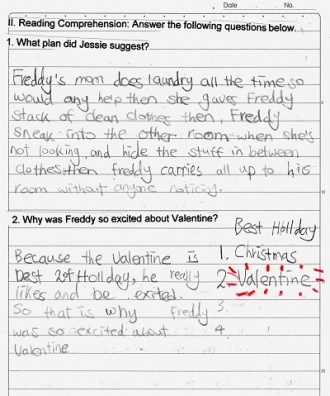 Date No.
II. Reading Comprehension: Answer the following questions below.
1. What plan did Jessie suggest?
Freddy's mom does laundry all the time so
would any help then she gaves Freddy
stack of clean clothes then, Freddy
sneak into the other room when she's
not looking, and hide the stuff in between
clothes, then freddy carries all up to his
room without anyone noticing.
2. Why was Freddy so excited about Valentine?
Best Holiday
Because the Valentine is 1. Christmas
best 2nd Holiday, he really 2. Valentine
likes and be exited.
So that is why freddy 3.
was so excited about 4.
Valentine